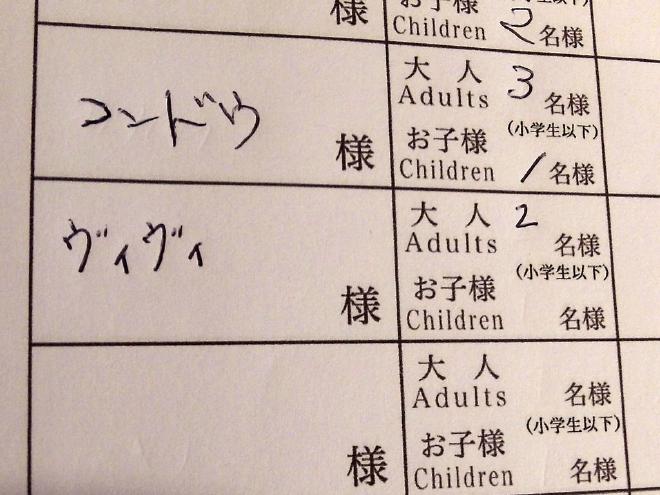 様
お子様
Children 2 名様
コンドウ 様
大人
Adults 3 名様
(小学生以下)
お子様
Children 1 名様
ヴィヴィ 様
大人
Adults 2 名様
(小学生以下)
お子様
Children 名様
様
大人
Adults 名様
(小学生以下)
お子様
Children 名様